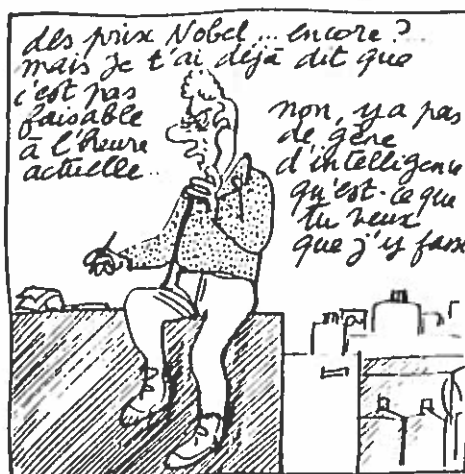 des prix Nobel... encore ?
mais je t'ai déjà dit que
c'est pas
faisable
à l'heure
actuelle...
non, y a pas
de gène
d'intelligence
qu'est-ce que
tu veux
que j'y fasse